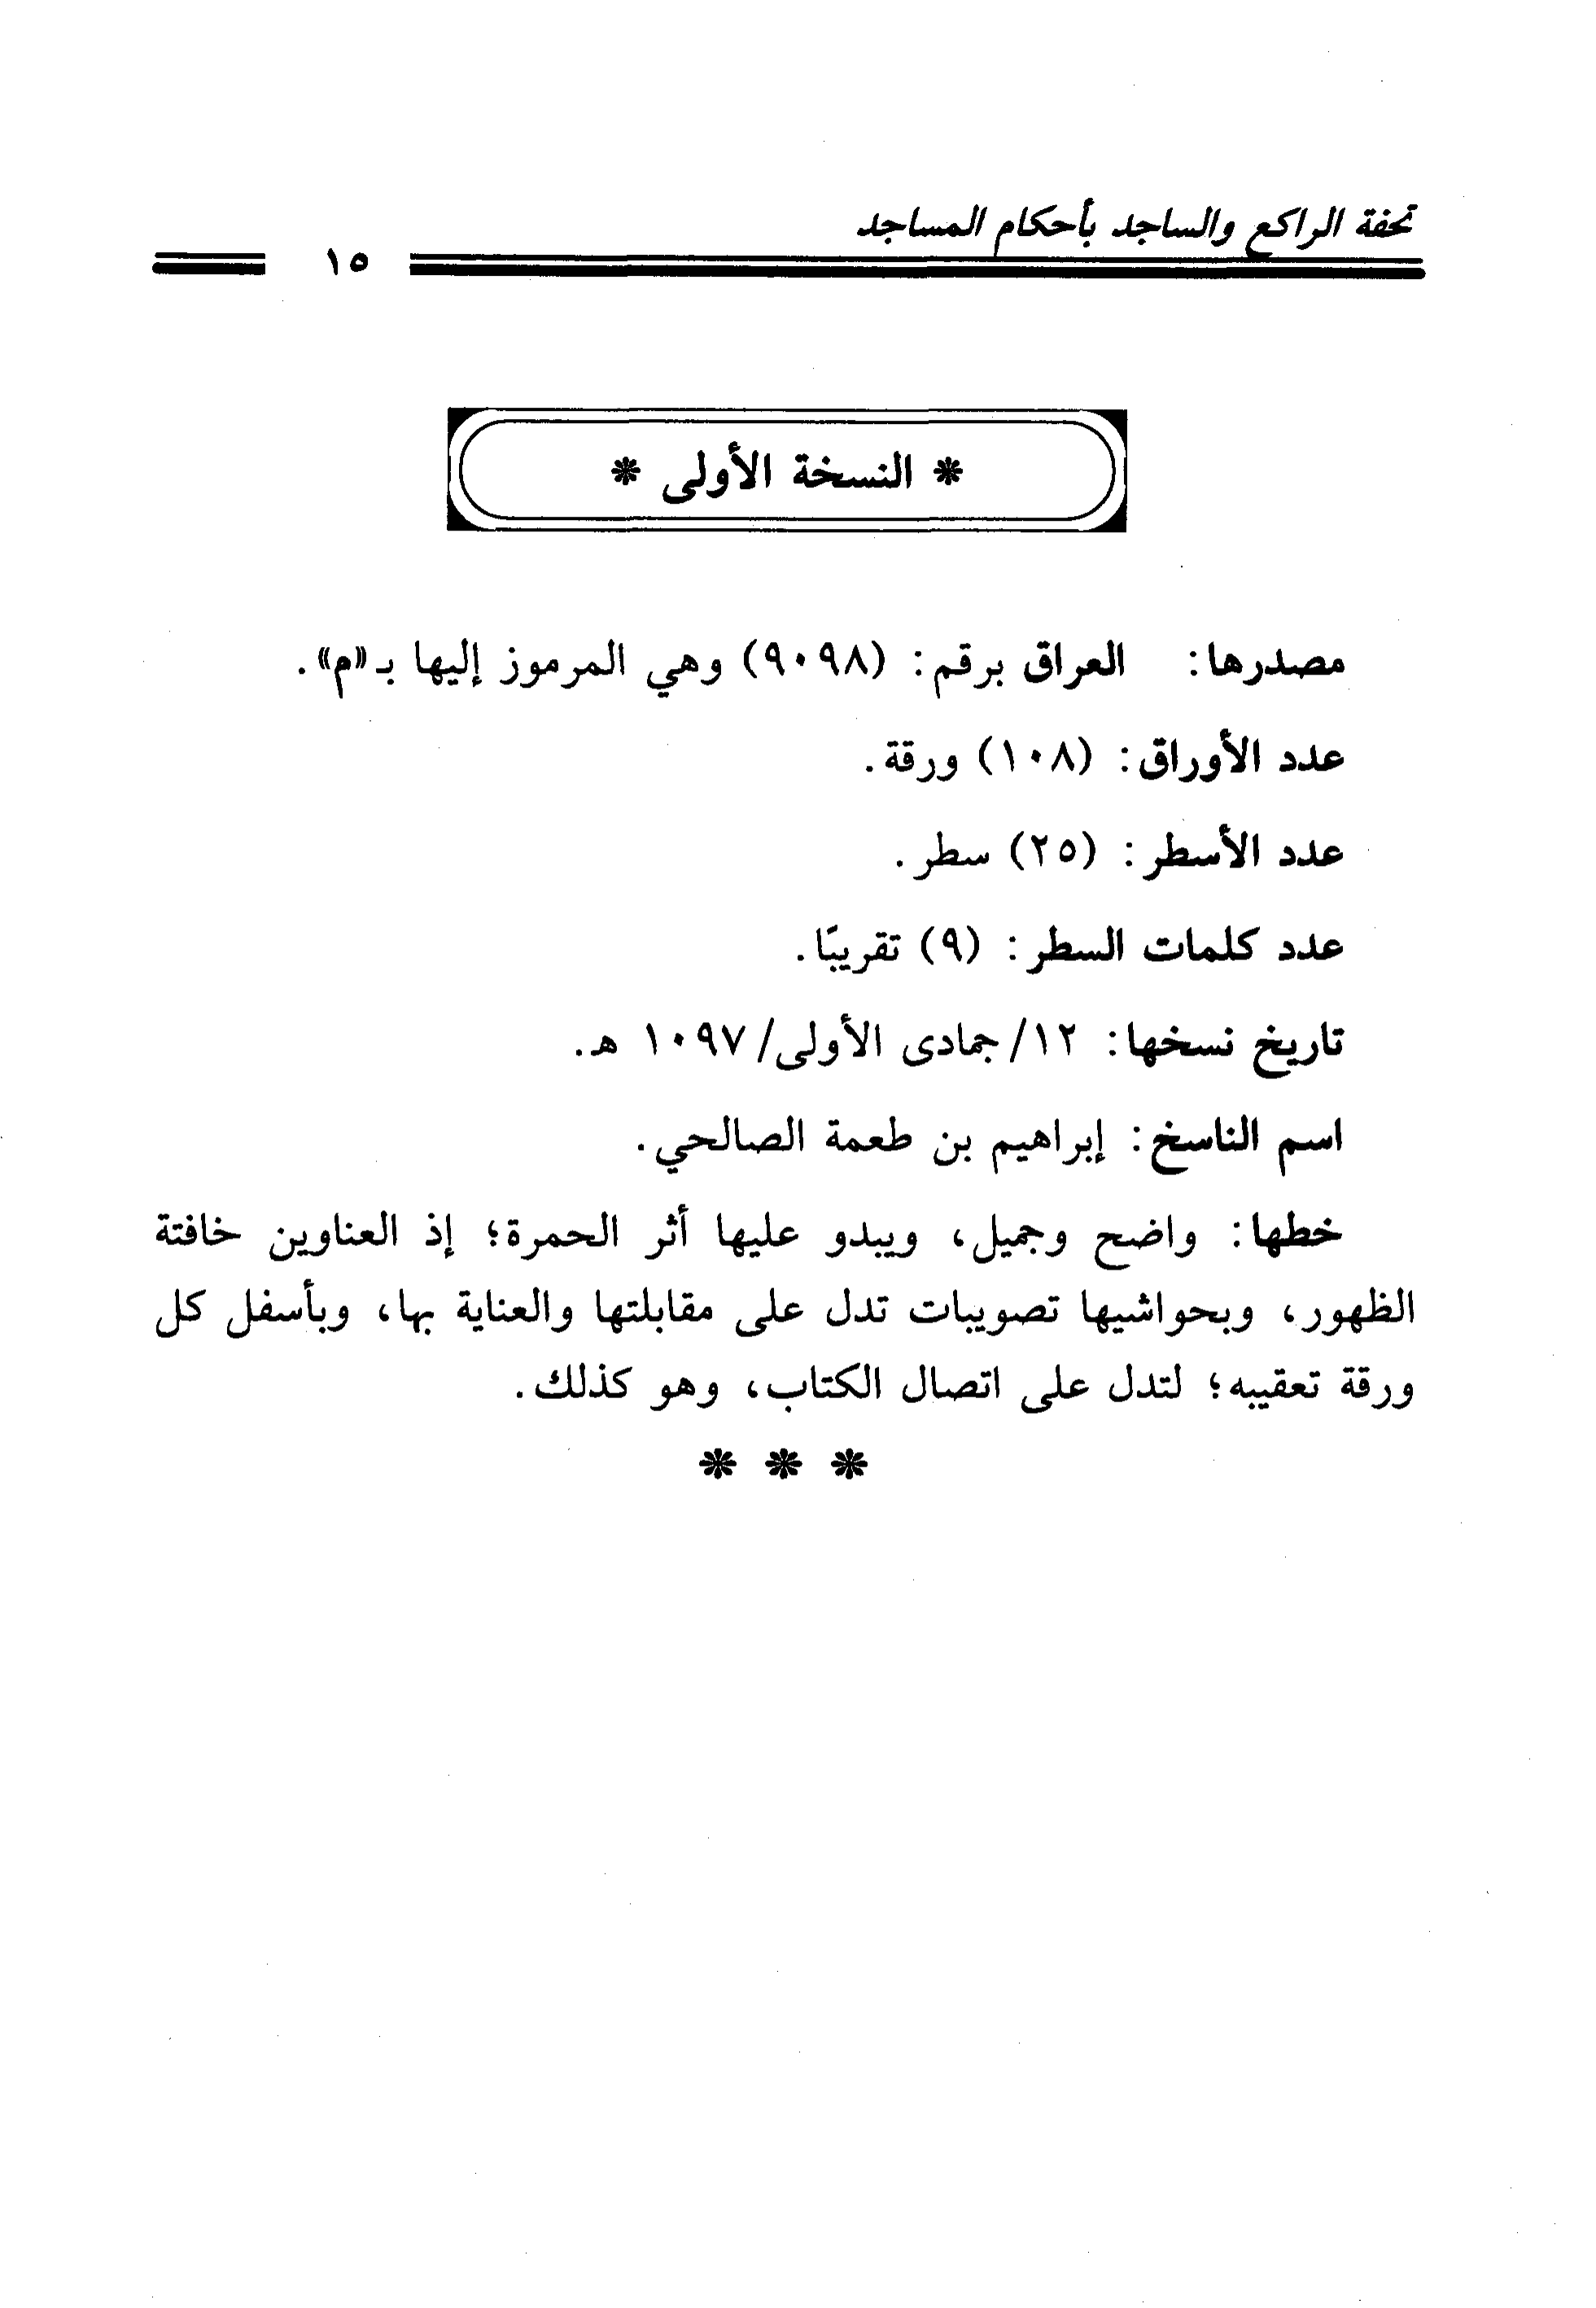 تحفة الراكع والساجد بأحكام المساجد
١٥
* النسخة الأولى *
مصدرها: العراق برقم: (٩٠٩٨) وهي المرموز إليها بـ «م».
عدد الأوراق: (١٠٨) ورقة.
عدد الأسطر: (٢٥) سطر.
عدد كلمات السطر: (٩) تقريبًا.
تاريخ نسخها: ١٢/جمادى الأولى/١٠٩٧ هـ.
اسم الناسخ: إبراهيم بن طعمة الصالحي.
خطها: واضح وجميل، ويبدو عليها أثر الحمرة؛ إذ العناوين خافتة
الظهور، وبحواشيها تصويبات تدل على مقابلتها والعناية بها، وبأسفل كل
ورقة تعقيبه؛ لتدل على اتصال الكتاب، وهو كذلك.
* * *